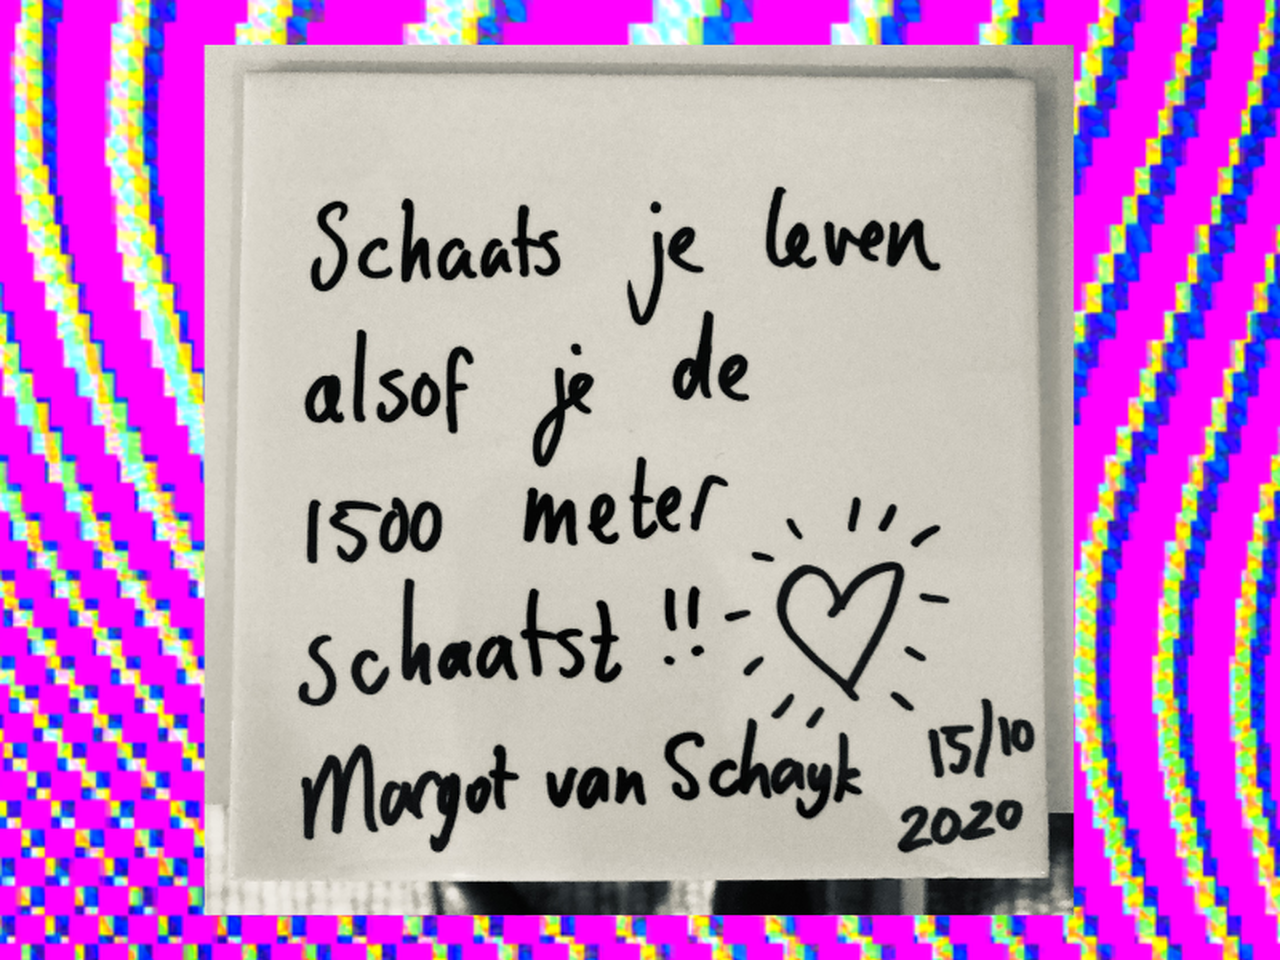 Schaats je leven
alsof je de
1500 meter
schaatst !!
Margot van Schayk
15/10
2020